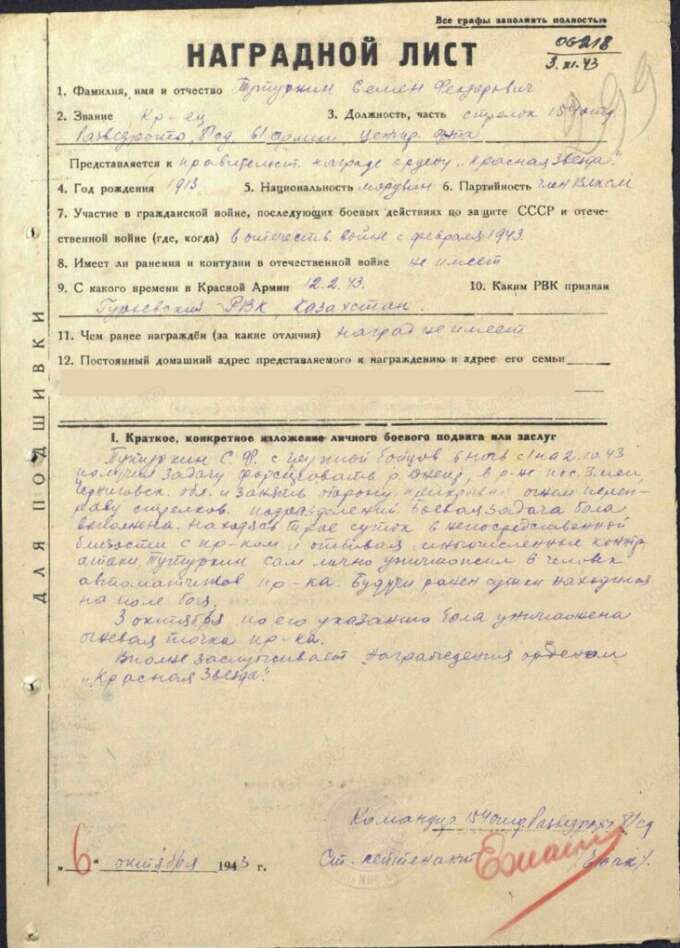 Все графы заполнить полностью
НАГРАДНОЙ ЛИСТ
3.XI.43
1. Фамилия, имя и отчество Тутуркин Семен Феодорович
2. Звание Кр-ец 3. Должность, часть стрелок 154 отд.
разведроты, 61 армии, Центр. фнта
Представляется к правительст. награде ордену „Красная Звезда".
4. Год рождения 1913 5. Национальность мордвин 6. Партийность член ВЛКСМ
7. Участие в гражданской войне, последующих боевых действиях по защите СССР и отече-
ственной войне (где, когда) в отечеств. войне с февраля 1943.
8. Имеет ли ранения и контузии в отечественной войне не имеет
9. С какого времени в Красной Армии 12.2.43. 10. Каким РВК призван
Гурьевский РВК, Казахстан.
11. Чем ранее награждён (за какие отличия) наград не имеет
12. Постоянный домашний адрес представляемого к награждению и адрес его семьи
I. Краткое, конкретное изложение личного боевого подвига или заслуг
Тутуркин С.Ф. с группой бойцов в ночь с 1 на 2.10.43
получил задачу форсировать р. Днепр, в р-не пос.
Черниговск. обл. и занять оборону, прикрывая огнем переп-
раву стрелков. подразделений. Боевая задача была
выполнена. Находясь трое суток в непосредственной
близости с пр-ком и отбивая многочисленные контр
атаки, Тутуркин сам лично уничтожил 6 человек
автоматчиков пр-ка. Будучи ранен сутки находился
на поле боя.
3 октября по его указанию была уничтожена
огневая точка пр-ка.
Вполне заслуживает награждения орденом
„Красная Звезда".
Командир 154 отд. разведроты 81 сд
Ст. лейтенант
„6" октября 1943 г.
ДЛЯ ПОДШИВКИ